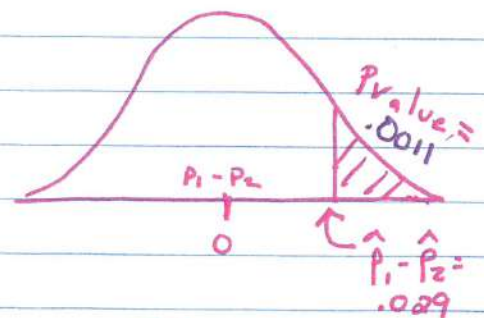 Pvalue =
.0011
p₁ - p₂
0
p̂₁ - p̂₂ =
.029